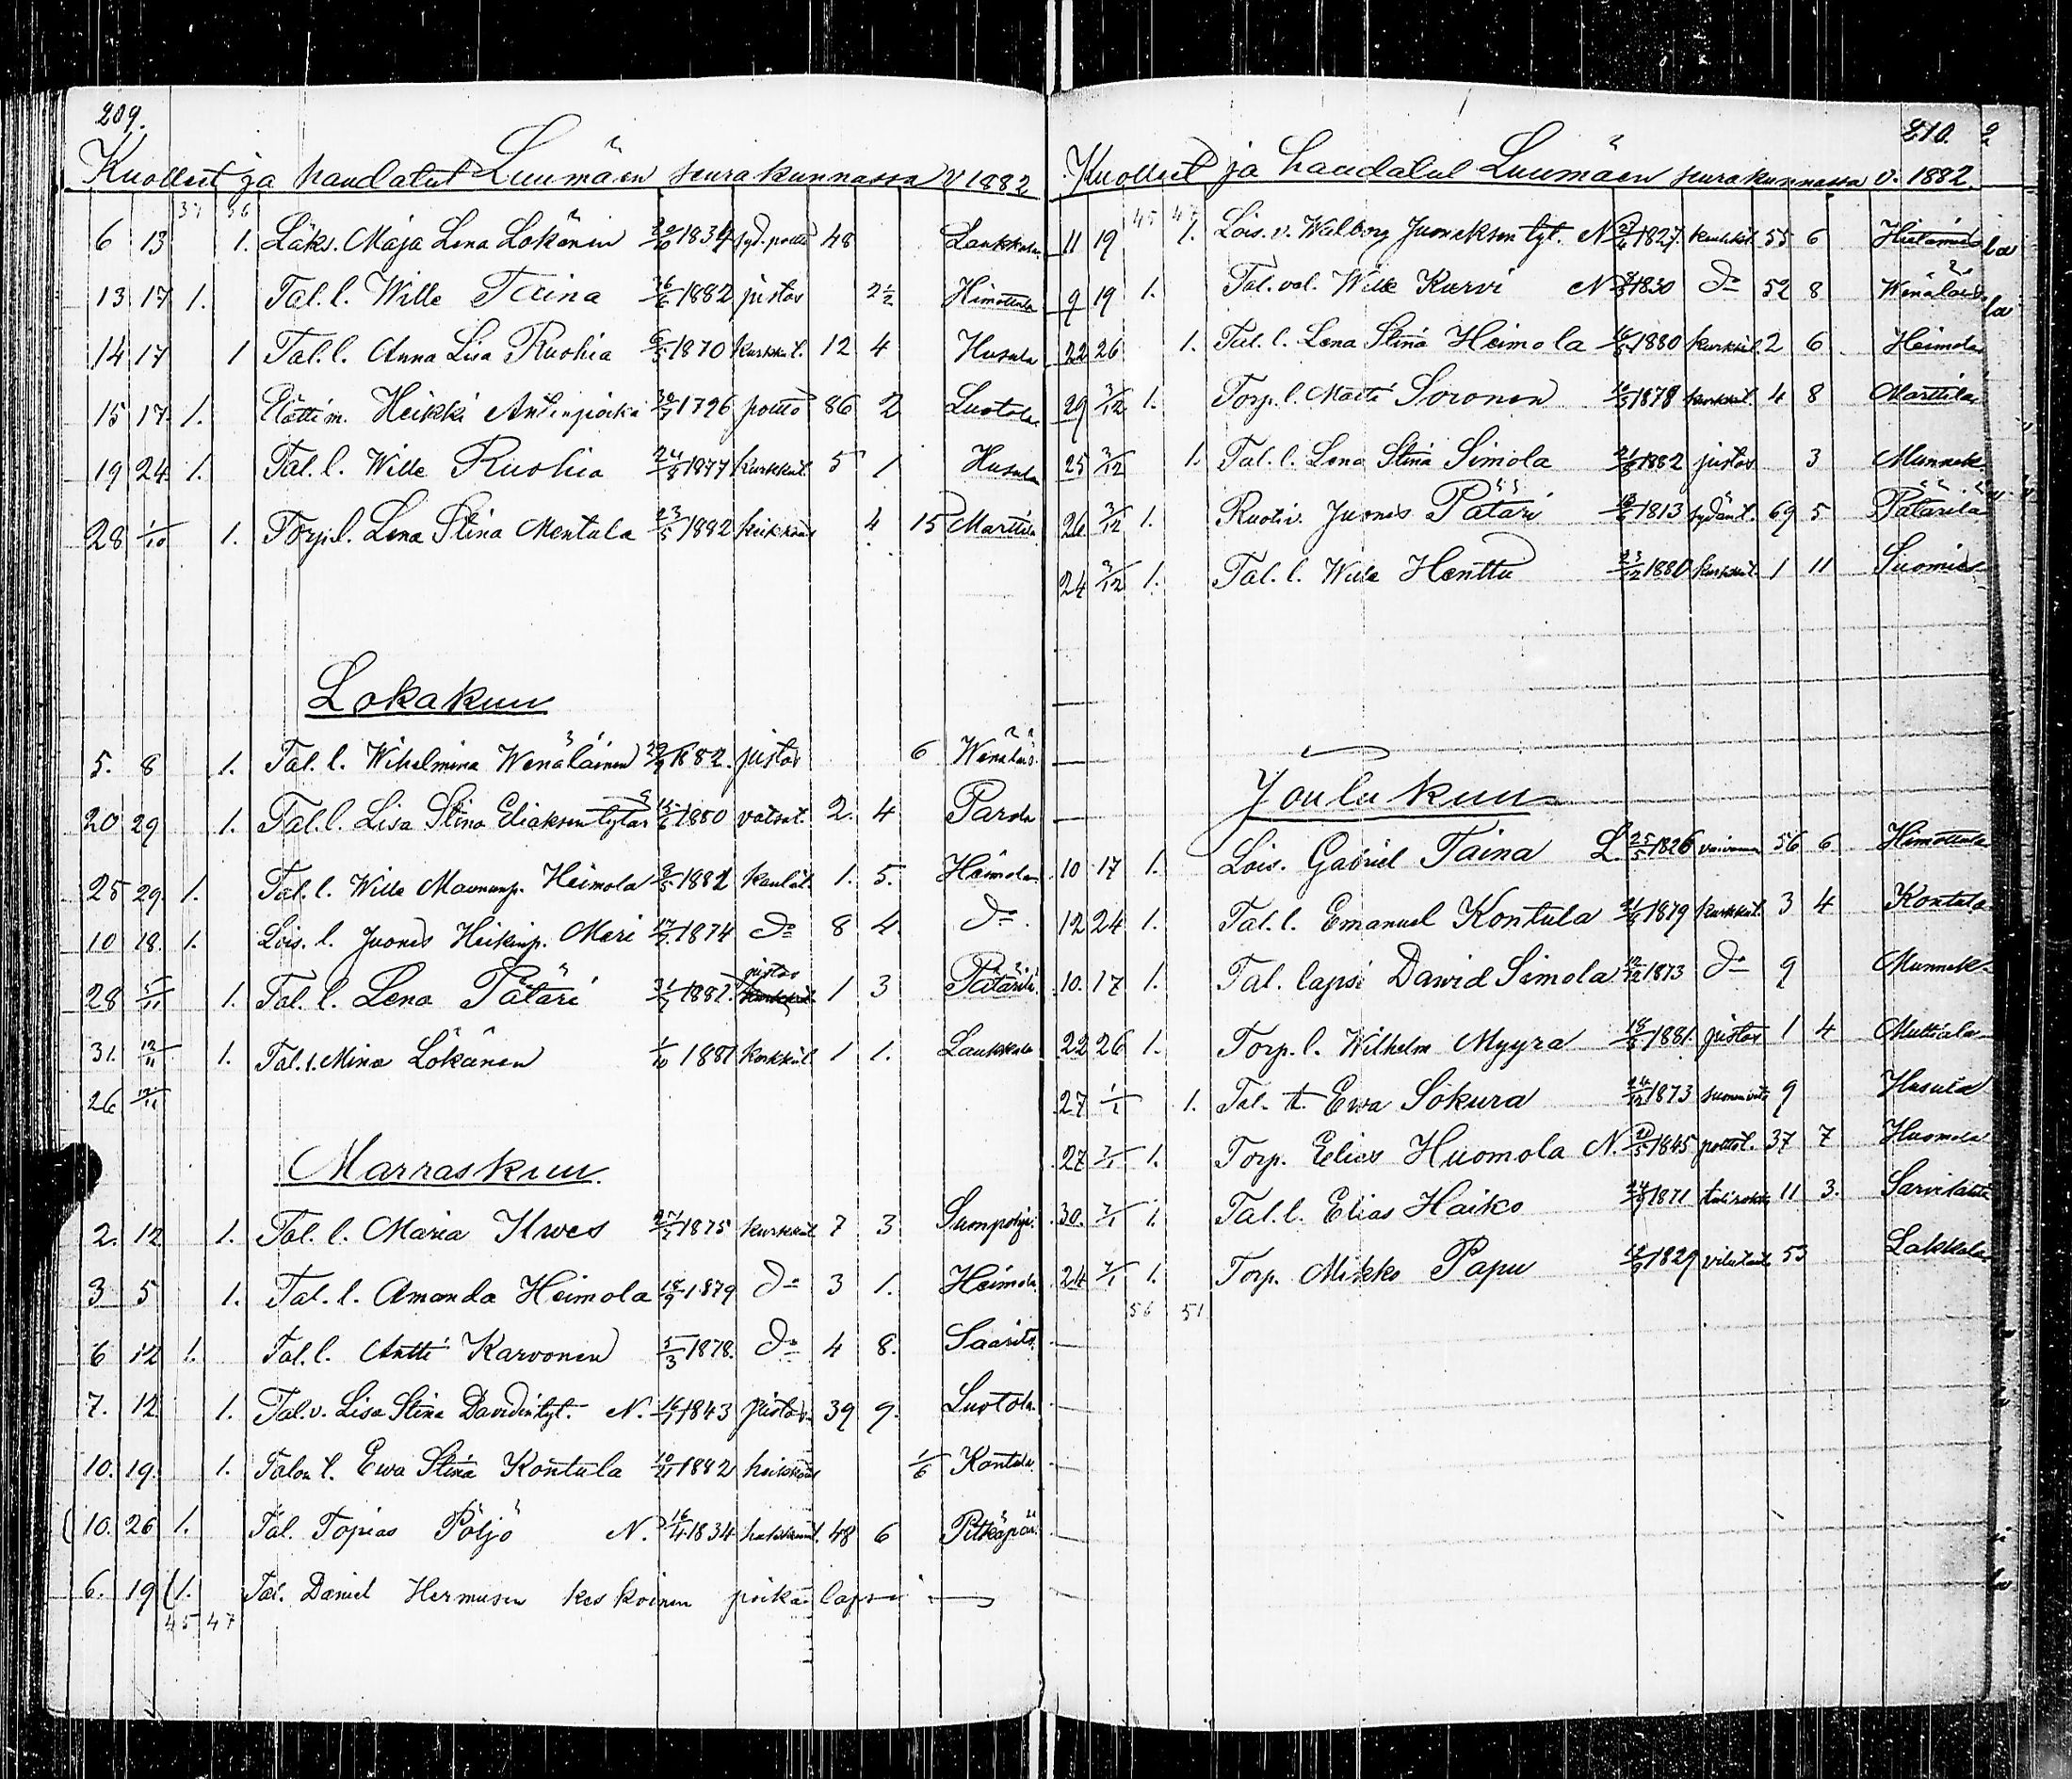 209.
Kuolleet ja haudatut Luumäen seurakunnassa v 1882
37 36
6 13 1. Läks. Maja Lena Lökänen 1834 syd. poltto 48 Laukkala
13 17 1. Tal. l. Wille Taina 1882 pistos 2½ Himottula
14 17 1 Tal. l. Anna Lisa Ruohia 1870 kurkkut. 12 4 Husula
15 17 1. Elätti m. Heikki Antinpoika 1796 poltto 86 2 Luotola
19 24 1. Tal. l. Wille Ruohia 24/8 1877 kurkkut. 5 1 Husula
28 1/10 1. Torp. l. Lena Stina Mentula 23/5 1882 4 15 Marttila
Lokakuu
5. 8 1. Tal. l. Wihelmina Wenäläinen 29/9 1882. pistos 6 Wenäläis.
20 29 1. Tal. l. Lisa Stina Eliaksentytär 1880 vatsat. 2. 4 Parola
25 29. 1. Tal. l. Wille Maununp. Heimola 1881 1. 5. Heimola
10 18. 1. Lois. l. Juonas Heikinp. Meri 1874 do 8 4. do.
28 5/11 1. Tal. l. Lena Pätäri 1881. pistos 1 3 Pätärilä
31. 12/11 1. Tal. l. Mina Lökänen 1/10 1881 kurkkut. 1 1. Laukkala
26 12/11
Marraskuu
2. 12 1. Tal. l. Maria Ilwes 1875 kurkkut 7 3 Sumpohja.
3 5 1. Tal. l. Amanda Heimola 18/9 1879 do 3 1. Heimola.
6 12 1. Tal. l. Antti Karvonen 5/3 1878. do 4 8. Saarits.
7. 12 1. Tal. v. Lisa Stina Davidintyt. N. 1843 pistos. 39 9. Luotola
10. 19. 1. Talon l. Ewa Stina Kontula 10/11 1882 1/6 Kontula
10. 26 1. Tal. Topias Pöljö N. 16/4 1834 48 6 Pitkäpää.
6. 19 1. Tal. Daniel Hermusen keskoinen poika lapsi —
45 47
210.
Kuolleet ja haudatut Luumäen seurakunnassa v. 1882.
45 47
11 19 1. Lois. v. Walborg Juonaksen tyt. N 1827. 55 6 Hietamies
9 19 1. Tal. val. Wille Kurvi N 1830 do 52 8 Wenäläis
22 26 1. Tal. l. Lena Stina Heimola 1880 kurkkut. 2 6 Heimola
29 3/12 1. Torp. l. Matti Soronen 1878 kurkkut. 4 8 Marttila
25 3/12 1. Tal. l. Lena Stina Simola 21/8 1882 pistos 3 Munnik.
26 3/12 1. Ruotiv. Juonas Pätäri 1813 sydänt. 69 5 Pätärilä
24 3/12 1. Tal. l. Wille Henttu 23/12 1880 kurkkut. 1 11 Suomies
Joulukuu
10 17 1. Lois. Gabriel Taina L. 25/5 1826 56 6 Himottula
12 24 1. Tal. l. Emanuel Kontula 21/8 1879 kurkkut. 3 4 Kontula
10. 17 1. Tal. lapsi Dawid Simola 12/12 1873 do 9 Munnik.
22 26 1. Torp. l. Wilhelm Myyrä 18/8 1881. pistos 1 4 Multiala
27 1/1 1. Tal. t. Ewa Sokura 24/12 1873 9 Husula
27 7/1 1. Torp. Elias Huomola N. 1845 polttot. 37 7 Huomola
30. 7/1 1. Tal. l. Elias Haiko 1871 tulirokko 11 3. Sarvilahti
24 7/1 1. Torp. Mikko Papu 1829 53 Lakkala
56 51